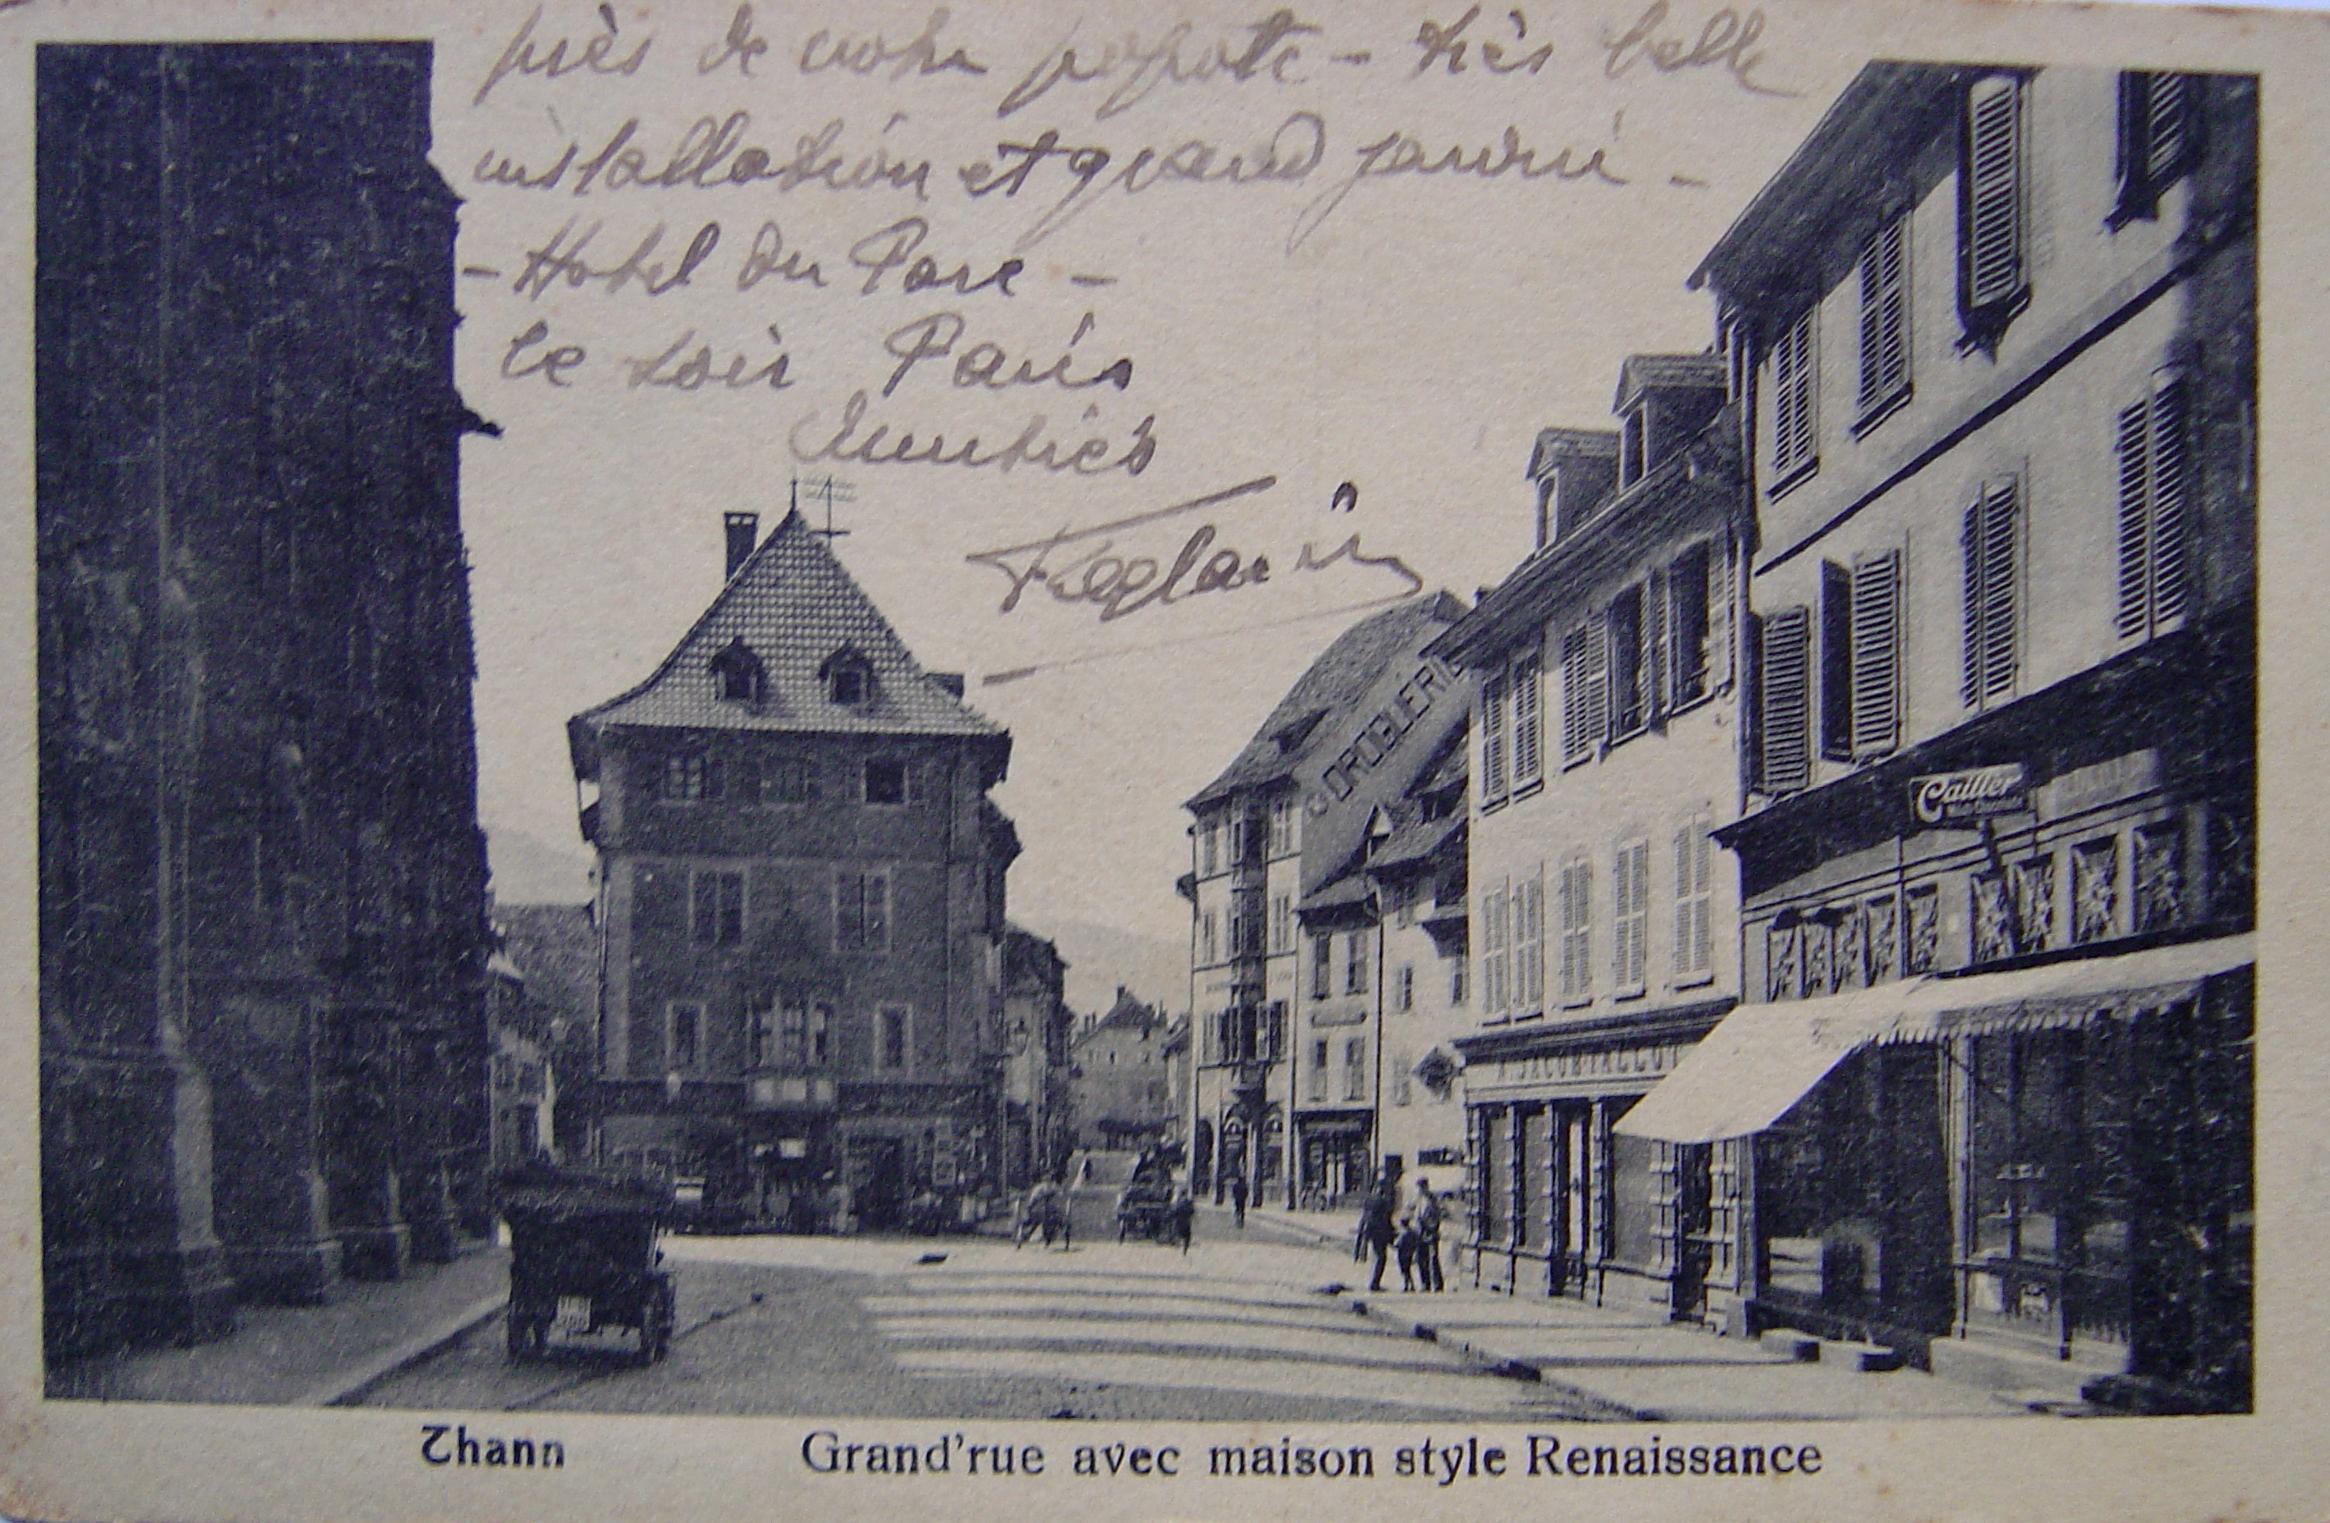 près de votre popote - très belle
installation et grand jardin -
- Hotel du Parc -
ce soir Paris
Amitiés
DROGUERIE
Cailler
Thann Grand'rue avec maison style Renaissance